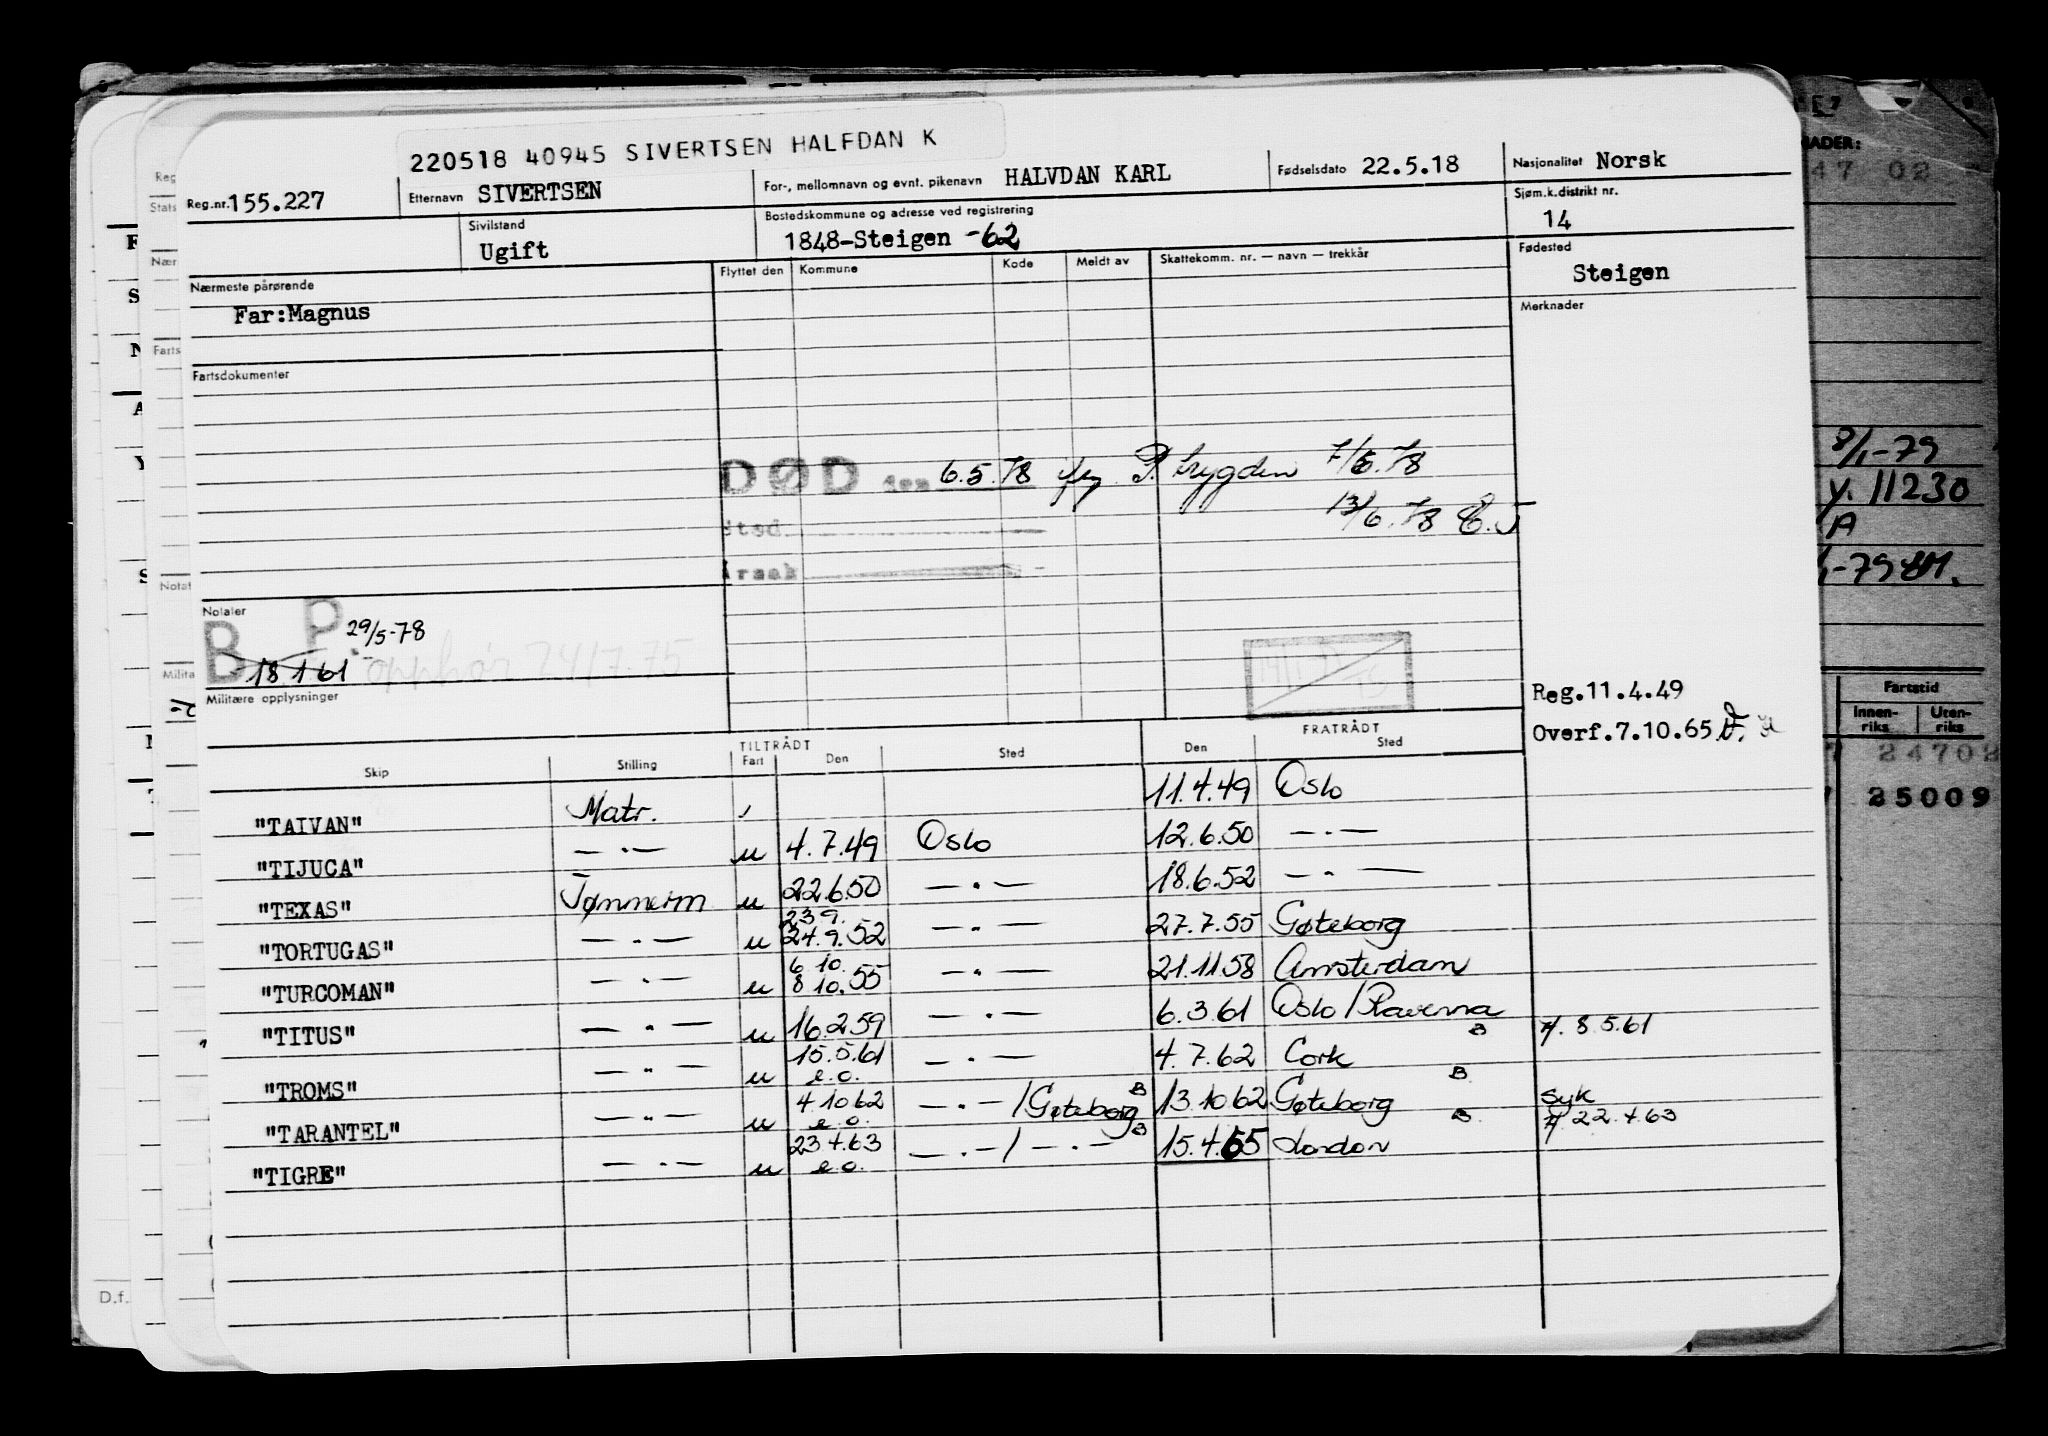 220518 40945 SIVERTSEN HALFDAN K
Reg.nr. 155.227 Etternavn SIVERTSEN For-, mellomnavn og evnt. pikenavn HALVDAN KARL Fødselsdato 22.5.18 Nasjonalitet Norsk
Sivilstand Ugift Bostedskommune og adresse ved registrering 1848-Steigen -62 Sjøm.k.distrikt nr. 14
Nærmeste pårørende Flyttet den Kommune Kode Meldt av Skattekomm. nr. — navn — trekkår Fødested
Far:Magnus Steigen
Merknader
Fartsdokumenter
DØD den 6.5.78 P. trygden 7/6.78
Sted 13/6.78 E.J
Årsak
Notater
B P. 29/5-78
18 1 61 opphør 24/7-75
Militære opplysninger
Reg.11.4.49
Overf.7.10.65
TILTRÅDT FRATRÅDT
Skip Stilling Fart Den Sted Den Sted
"TAIVAN" Matr. 11.4.49 Oslo
"TIJUCA" —.— u 4.7.49 Oslo 12.6.50 —.—
"TEXAS" Tømmerm u 22.6.50 —.— 18.6.52 —.—
"TORTUGAS" —.— u 23 9. 24.9.52 —.— 27.7.55 Gøteborg
"TURCOMAN" —.— u 6 10. 8 10.55 —.— 21.11.58 Amsterdam
"TITUS" —.— u 16.2.59 —.— 6.3.61 Oslo/Ravenna B 8.5.61
"TROMS" —.— u 15.5.61 e.o. —.— 4.7.62 Cork B
"TARANTEL" —.— u 4.10 62 e.o. —.—/Gøteborg B 13.10.62 Gøteborg B syk 22.4.63
"TIGRE" —.— u 23 4 63 e.o. —.—/—.— B 15.4.65 London
8/1-79
y. 11230
A
Fartstid
Innen-riks Uten-riks
24702
25009
D.f.